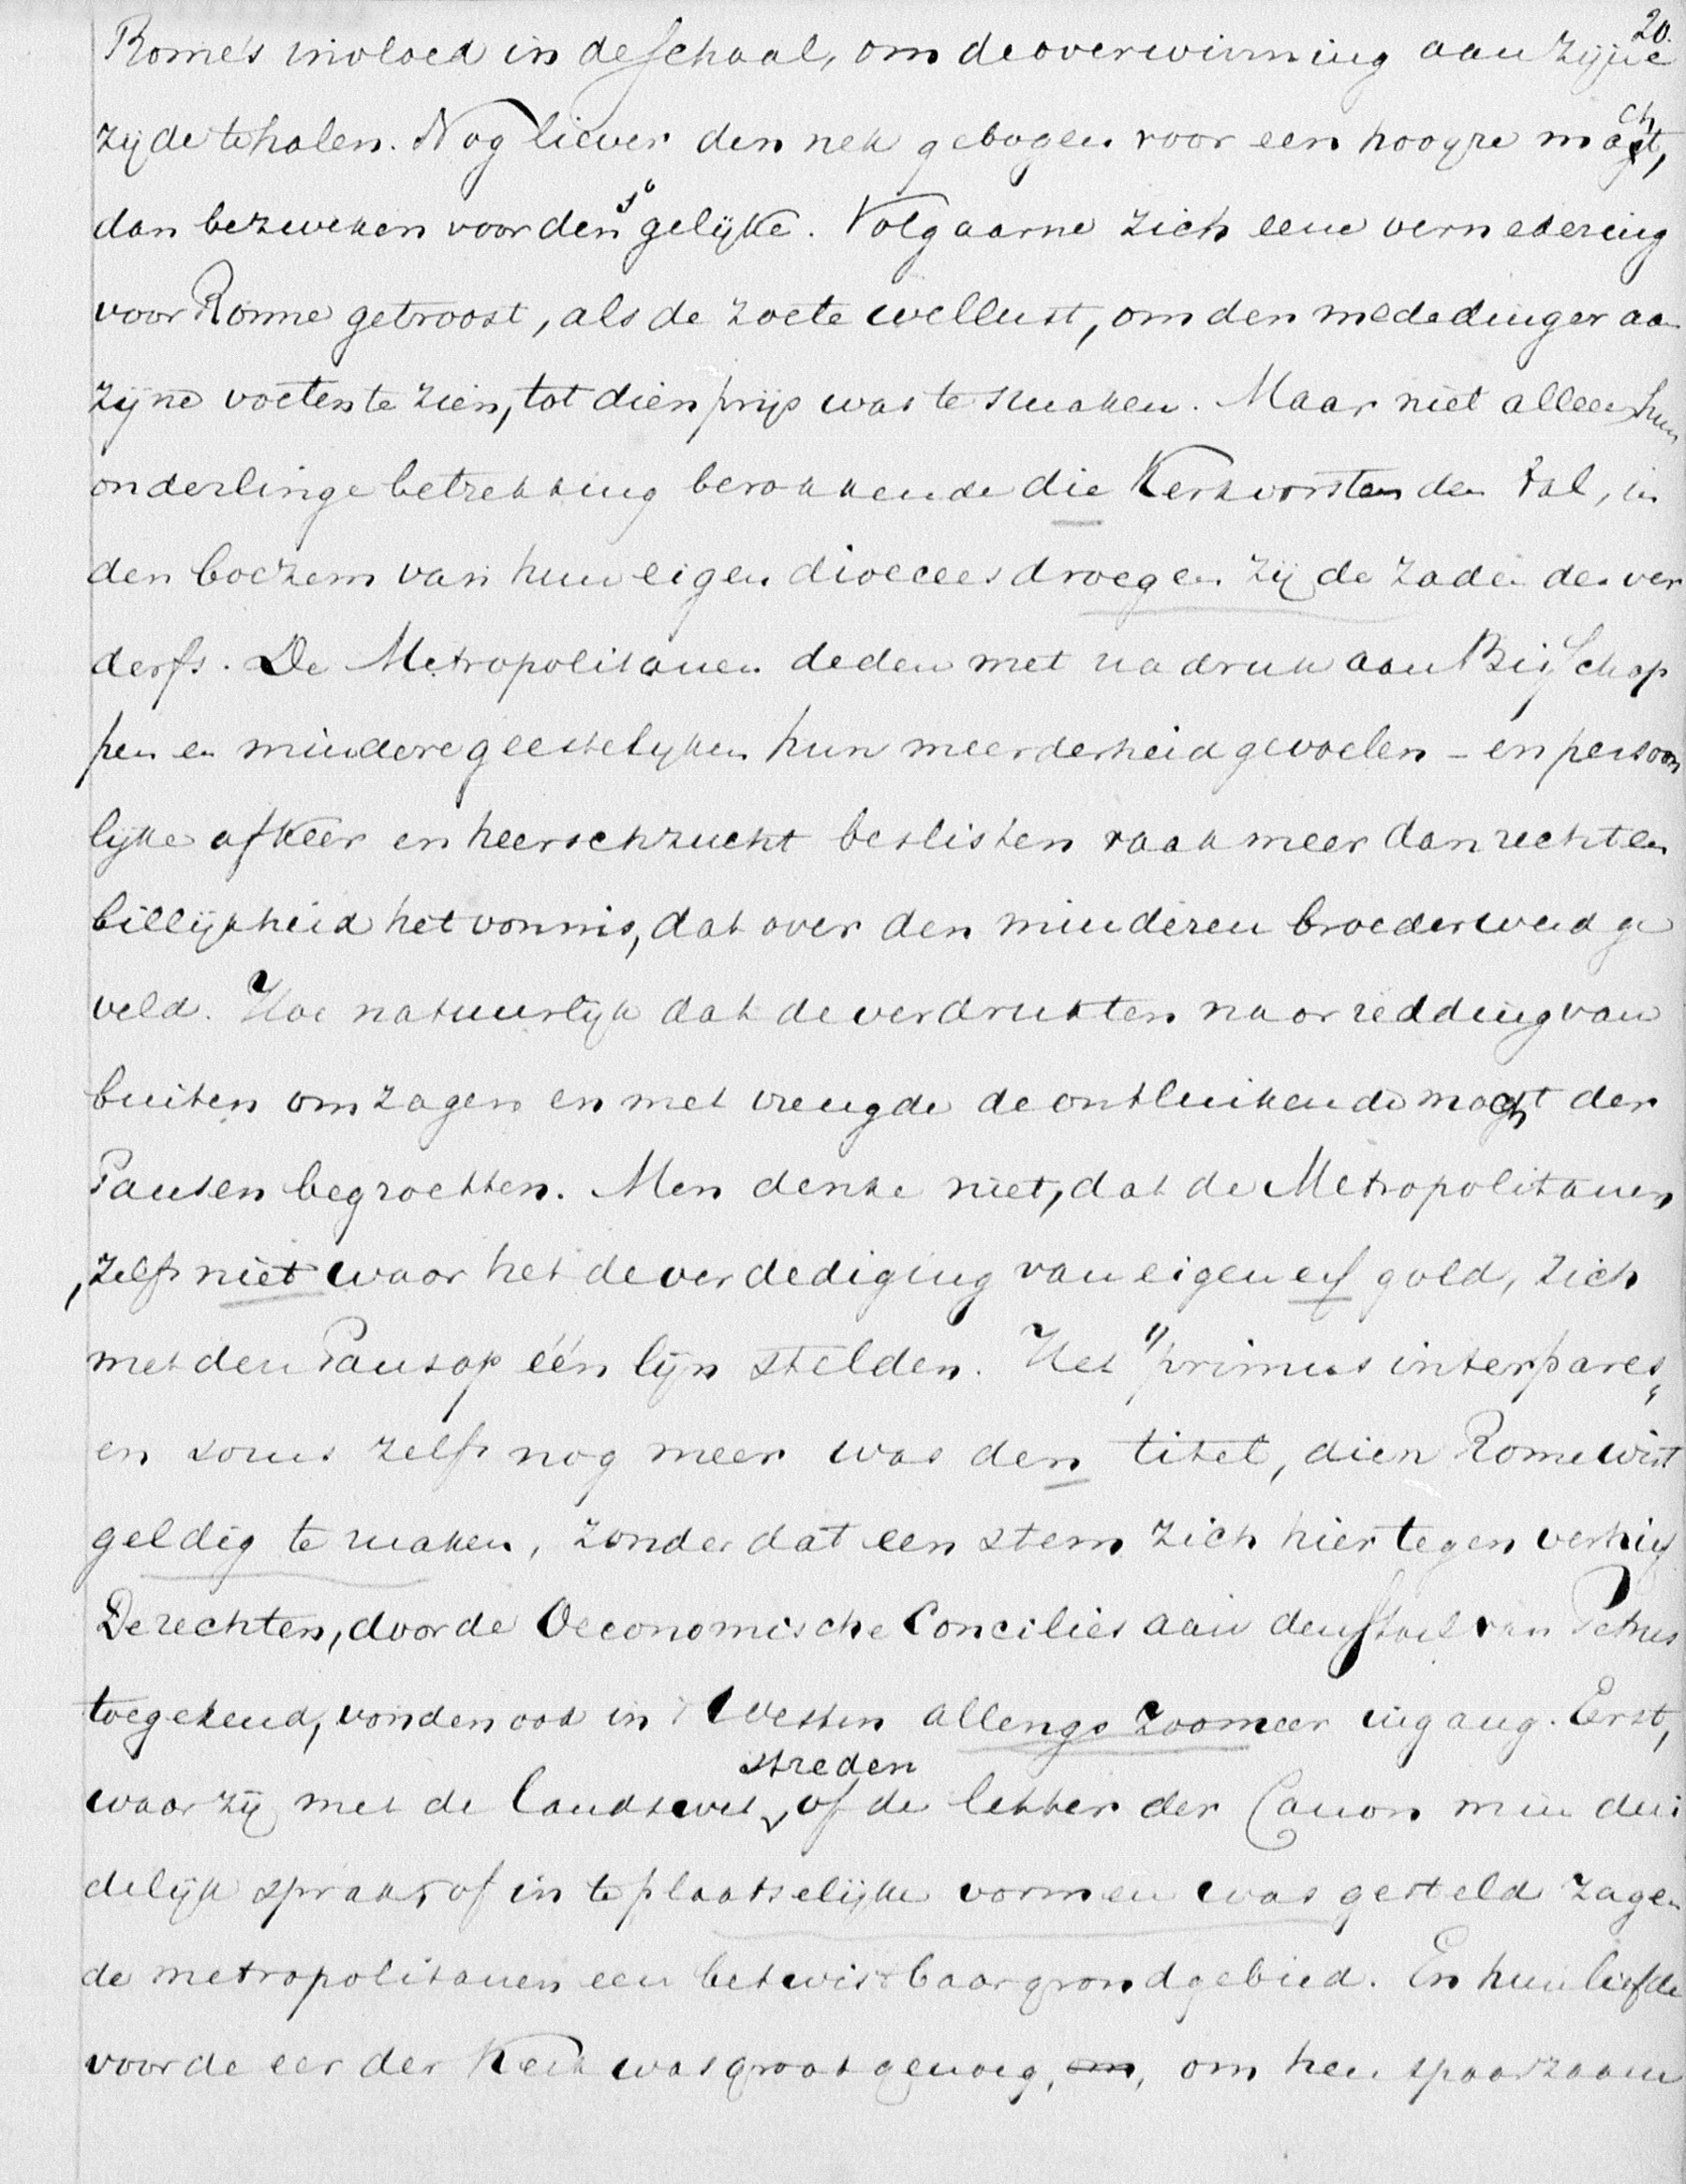 20.
Rome's invloed in de schaal, om de overwinning aan zijne
zijde te halen. Nog liever den nek gebogen voor een hoogre macht,
dan bezweken voor den's gelijke. Volgaarne zich eene vernedering
voor Rome getroost, als de zoete wellust, om den mededinger aan
zijne voeten te zien, tot dien prijs was te smaken. Maar niet alleen hun
onderlinge betrekking berokkende die Kerkvorsten den val, in
den boezem van hun eigen dioecees droegen zij de zaden des ver
derfs. De Metropolitanen deden met nadruk aan Bisschop
pen en mindere geestelijken hun meerderheid gevoelen - en persoon
lijke afkeer en heerschzucht beslisten vaak meer dan recht en
billijkheid het vonnis, dat over den minderen broeder werd ge
veld. Hoe natuurlijk dat de verdrukten naar redding van
buiten omzagen en met vreugde de ontluikende macht der
Pausen begroetten. Men denke niet, dat de Metropolitanen
, zelfs niet waar het de verdediging van eigen erf gold, zich
met den Paus op één lijn stelden. Het "primus inter pares„
en soms zelfs nog meer was den titel, dien Rome wist
geldig te maken, zonder dat een stem zich hiertegen verhief
De rechten, door de Oeconomische Conciliës aan den stoel van Petrus
toegekend, vonden ook in 't Westen allengs zoomeer ingang. Eerst,
waar zij met de landswet streden of de letter der Canon min dui
delijk sprak, of in te plaatselijke vormen was gesteld zagen
de metropolitanen een betwistbaar grondgebied. En hun liefde
voor de eer der Kerk was groot genoeg, om, om hen spaarzaam